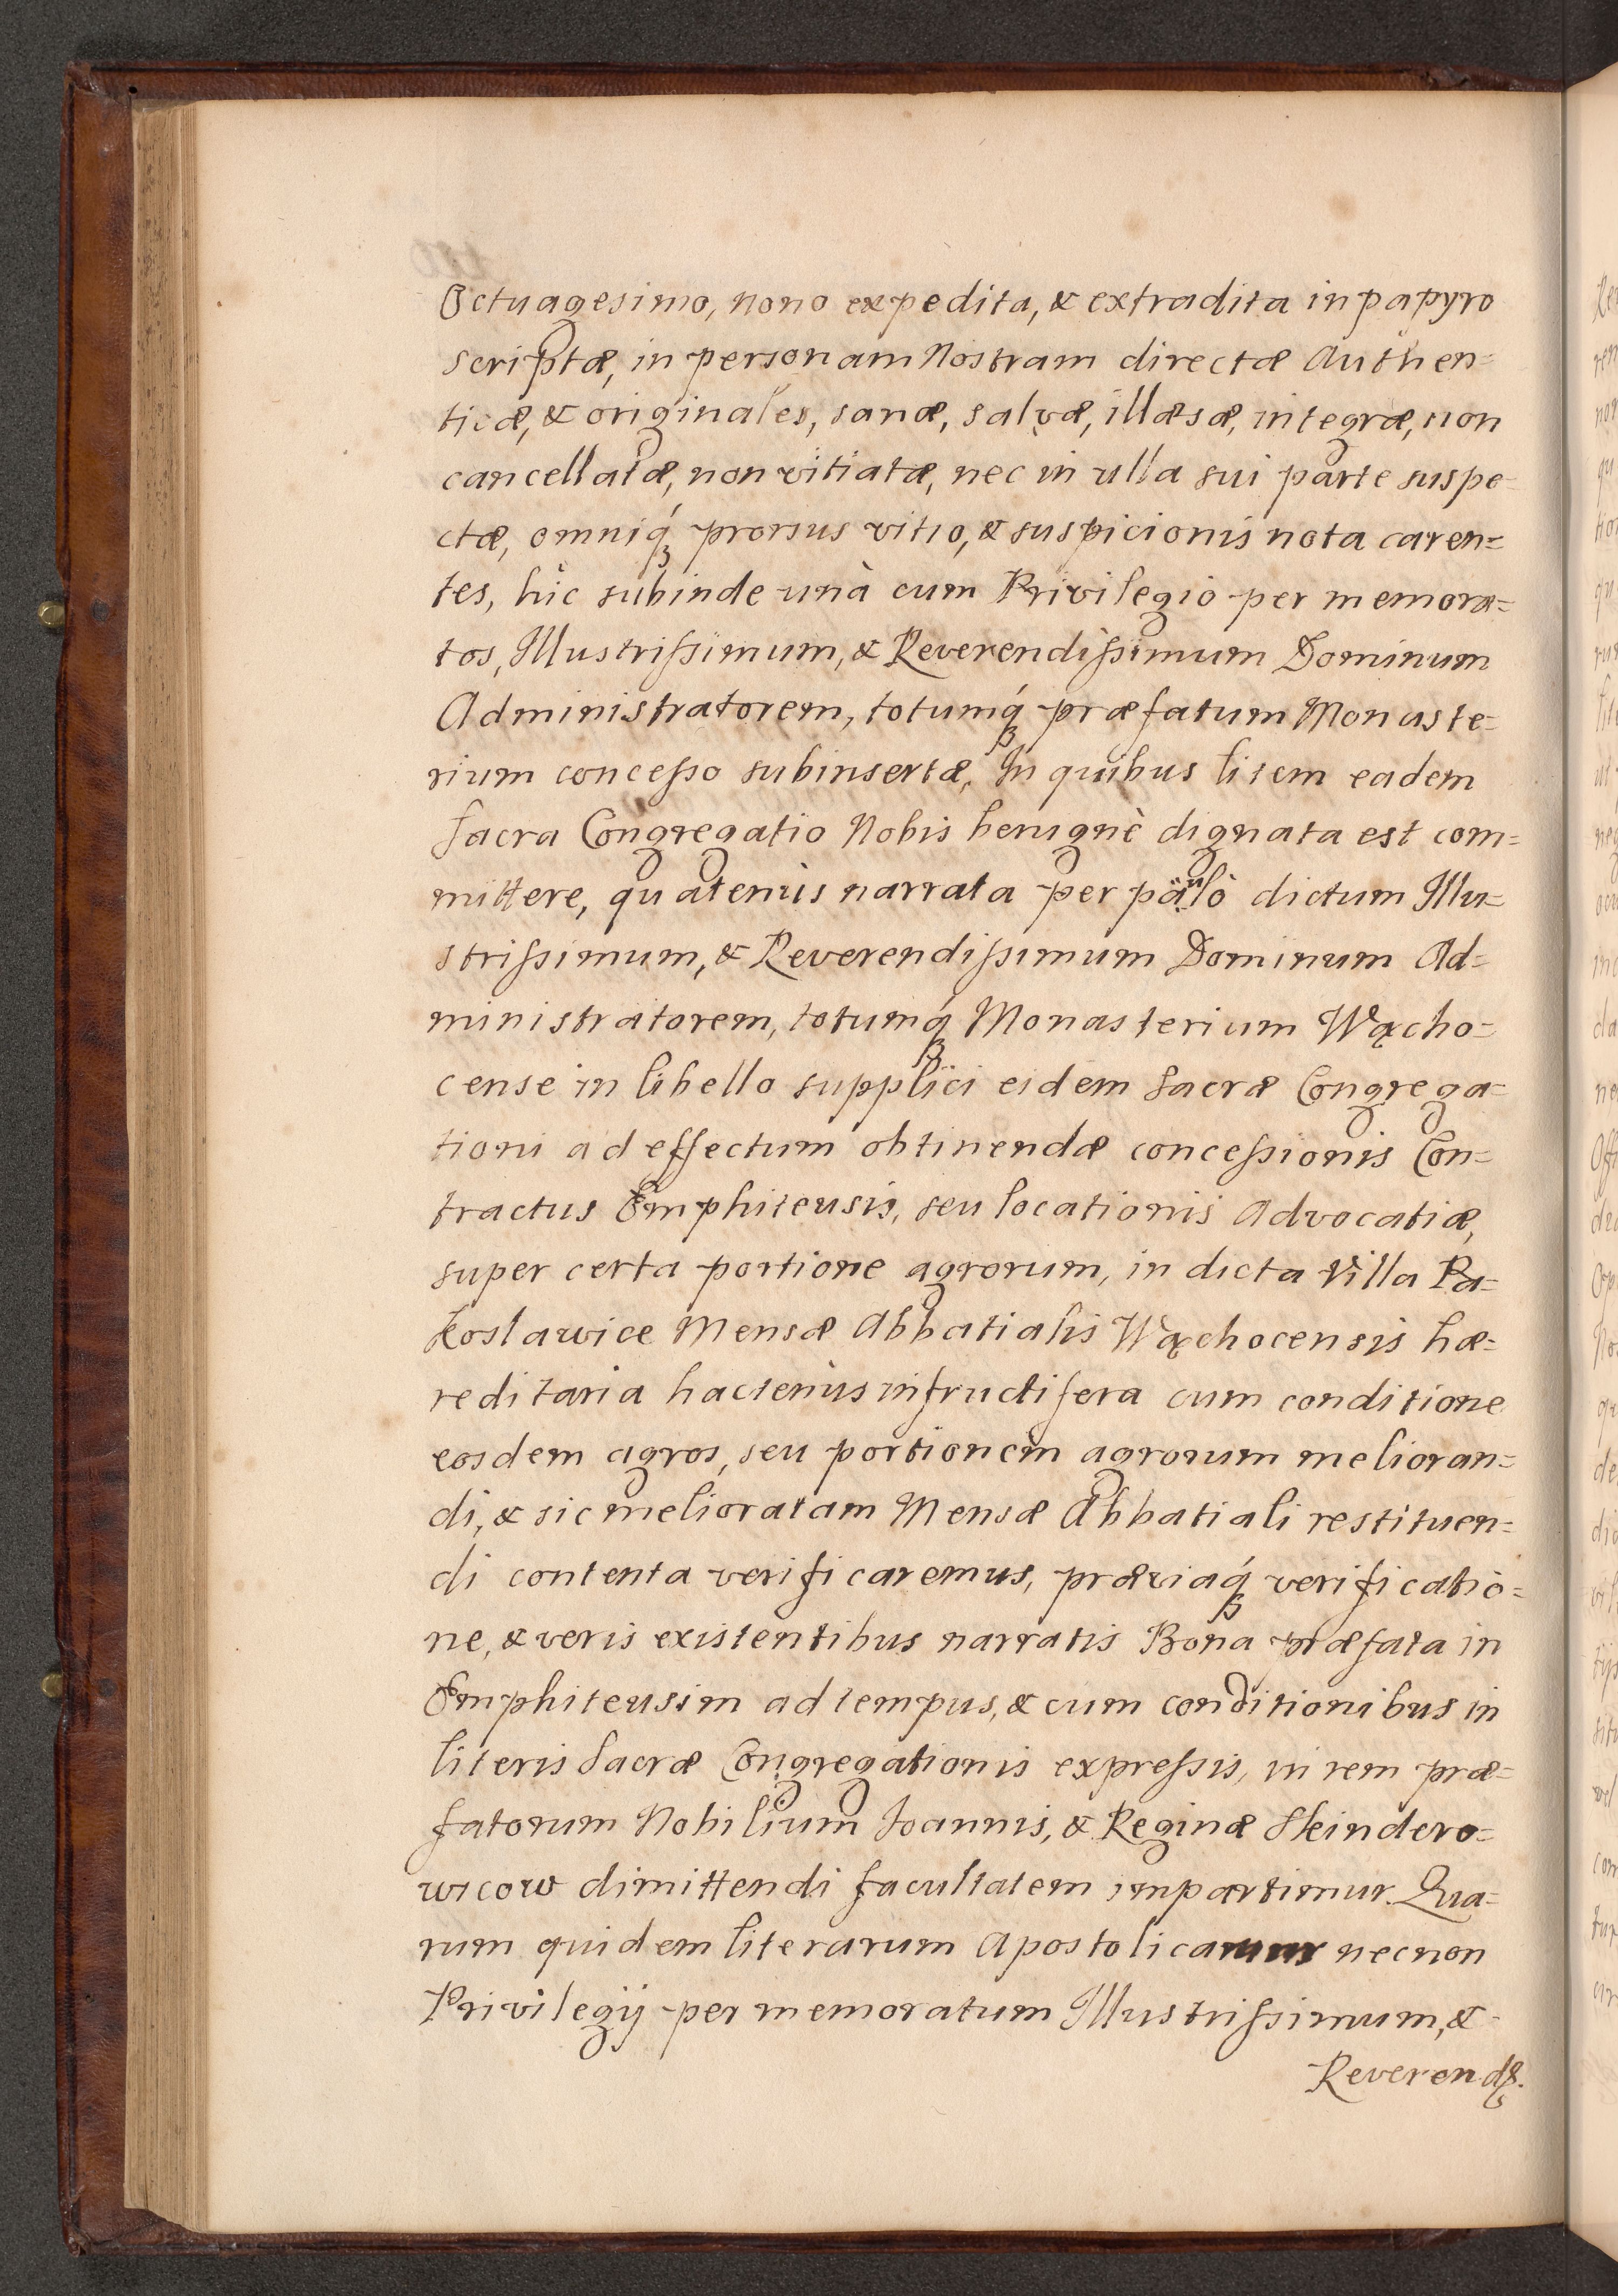 Octuagesimo, nono expedita, & extradita in papyro
scriptæ, in personam Nostram directæ Authen=
ticæ, & originales, sanæ, salvæ, illæsæ, integræ, non
cancellatæ, non vitiatæ, nec in ulla sui parte suspe=
ctæ, omniq́ꝫ prorsus vitio, & suspicionis nota caren=
tes, hîc subinde unà cum Privilegio per memora=
tos, Illustriſsimum, & Reverendiſsimum Dominum
Administratorem, totumq́ꝫ præfatum Monaste=
rium conceſso subinsertæ, In quibus litem eadem
Sacra Congregatio Nobis benignè dignata est com=
mittere, quatenùs narrata per paulò dictum Illu=
striſsimum, & Reverendiſsimum Dominum Ad=
ministratorem, totumq́ꝫ Monasterium Wącho=
cense in libello supplici eidem Sacræ Congrega=
tioni ad effectum obtinendæ conceſsionis Con=
tractus Emphiteusis, seu locationis Advocatiæ,
super certa portione agrorum, in dicta Villa Pa=
koslawice Mensæ Abbatialis Wąchocensis hæ=
reditaria hactenùs infructifera cum conditione
eosdem agros, seu portionem agrorum melioran=
di, & sic melioratam Mensæ Abbatiali restituen=
di contenta verificaremus, præviaq́ꝫ verificatio=
ne, & veris existentibus narratis Bona præfata in
Emphiteusim ad tempus, & cum conditionibus in
literis Sacræ Congregationis expreſsis, in rem præ=
fatorum Nobilium Joannis, & Reginæ Skindero=
wicow dimittendi facultatem impartimur. Qua=
rum quidem literarum Apostolicarum necnon
Privilegij per memoratum Illustriſsimum, &
Reverendſ.